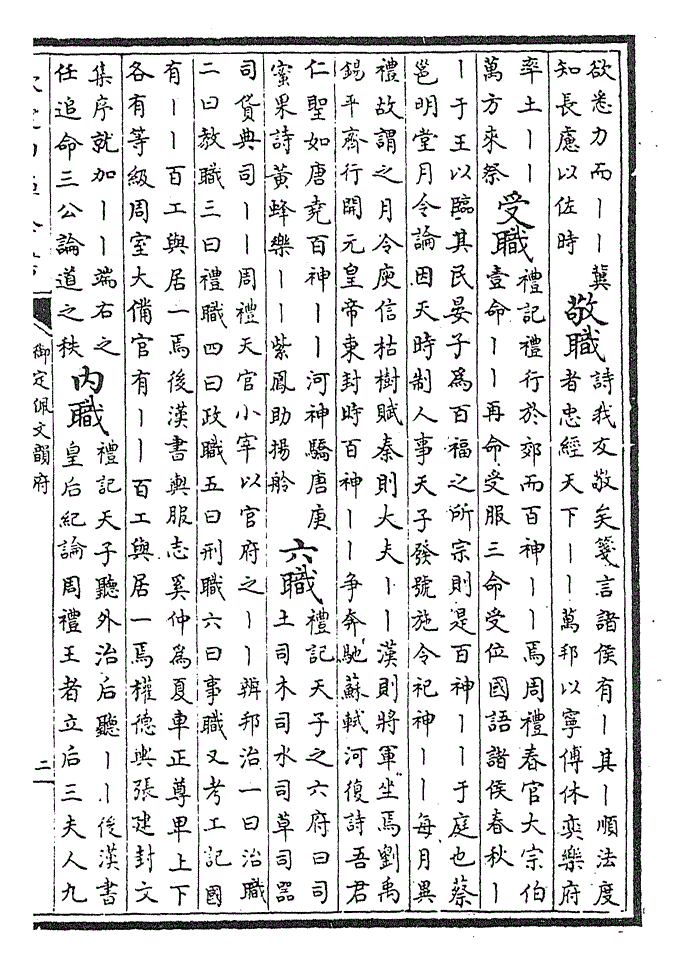 欲悉力而丨丨冀
知長慮以佐時
敬職
詩我友敬矣箋言諸侯有丨其丨順法度
者忠經天下丨丨萬邦以寧傅休奕樂府
率土丨丨
萬方來祭
受職
禮記禮行於郊而百神丨丨焉周禮春官大宗伯
壹命丨丨再命受服三命受位國語諸侯春秋丨
丨于王以臨其民晏子為百福之所宗則是百神丨丨于庭也蔡
邕明堂月令論因天時制人事天子發號施令祀神丨丨每月異
禮故謂之月令庾信枯樹賦秦則大夫丨丨漢則將軍坐焉劉禹
錫平齊行開元皇帝東封時百神丨丨爭奔馳蘇軾河復詩吾君
仁聖如唐堯百神丨丨河神驕唐庚
蜜果詩黃蜂樂丨丨紫鳳助揚舲
六職
禮記天子之六府曰司
土司木司水司草司器
司貨典司丨丨周禮天官小宰以官府之丨丨辨邦治一曰治職
二曰教職三曰禮職四曰政職五曰刑職六曰事職又考工記國
有丨丨百工與居一焉後漢書輿服志奚仲為夏車正尊卑上下
各有等級周室大備官有丨丨百工與居一焉權德輿張建封文
集序就加丨丨端右之
任追命三公論道之秩
內職
禮記天子聽外治后聽丨丨後漢書
皇后紀論周禮王者立后三夫人九
御定佩文韻府
二